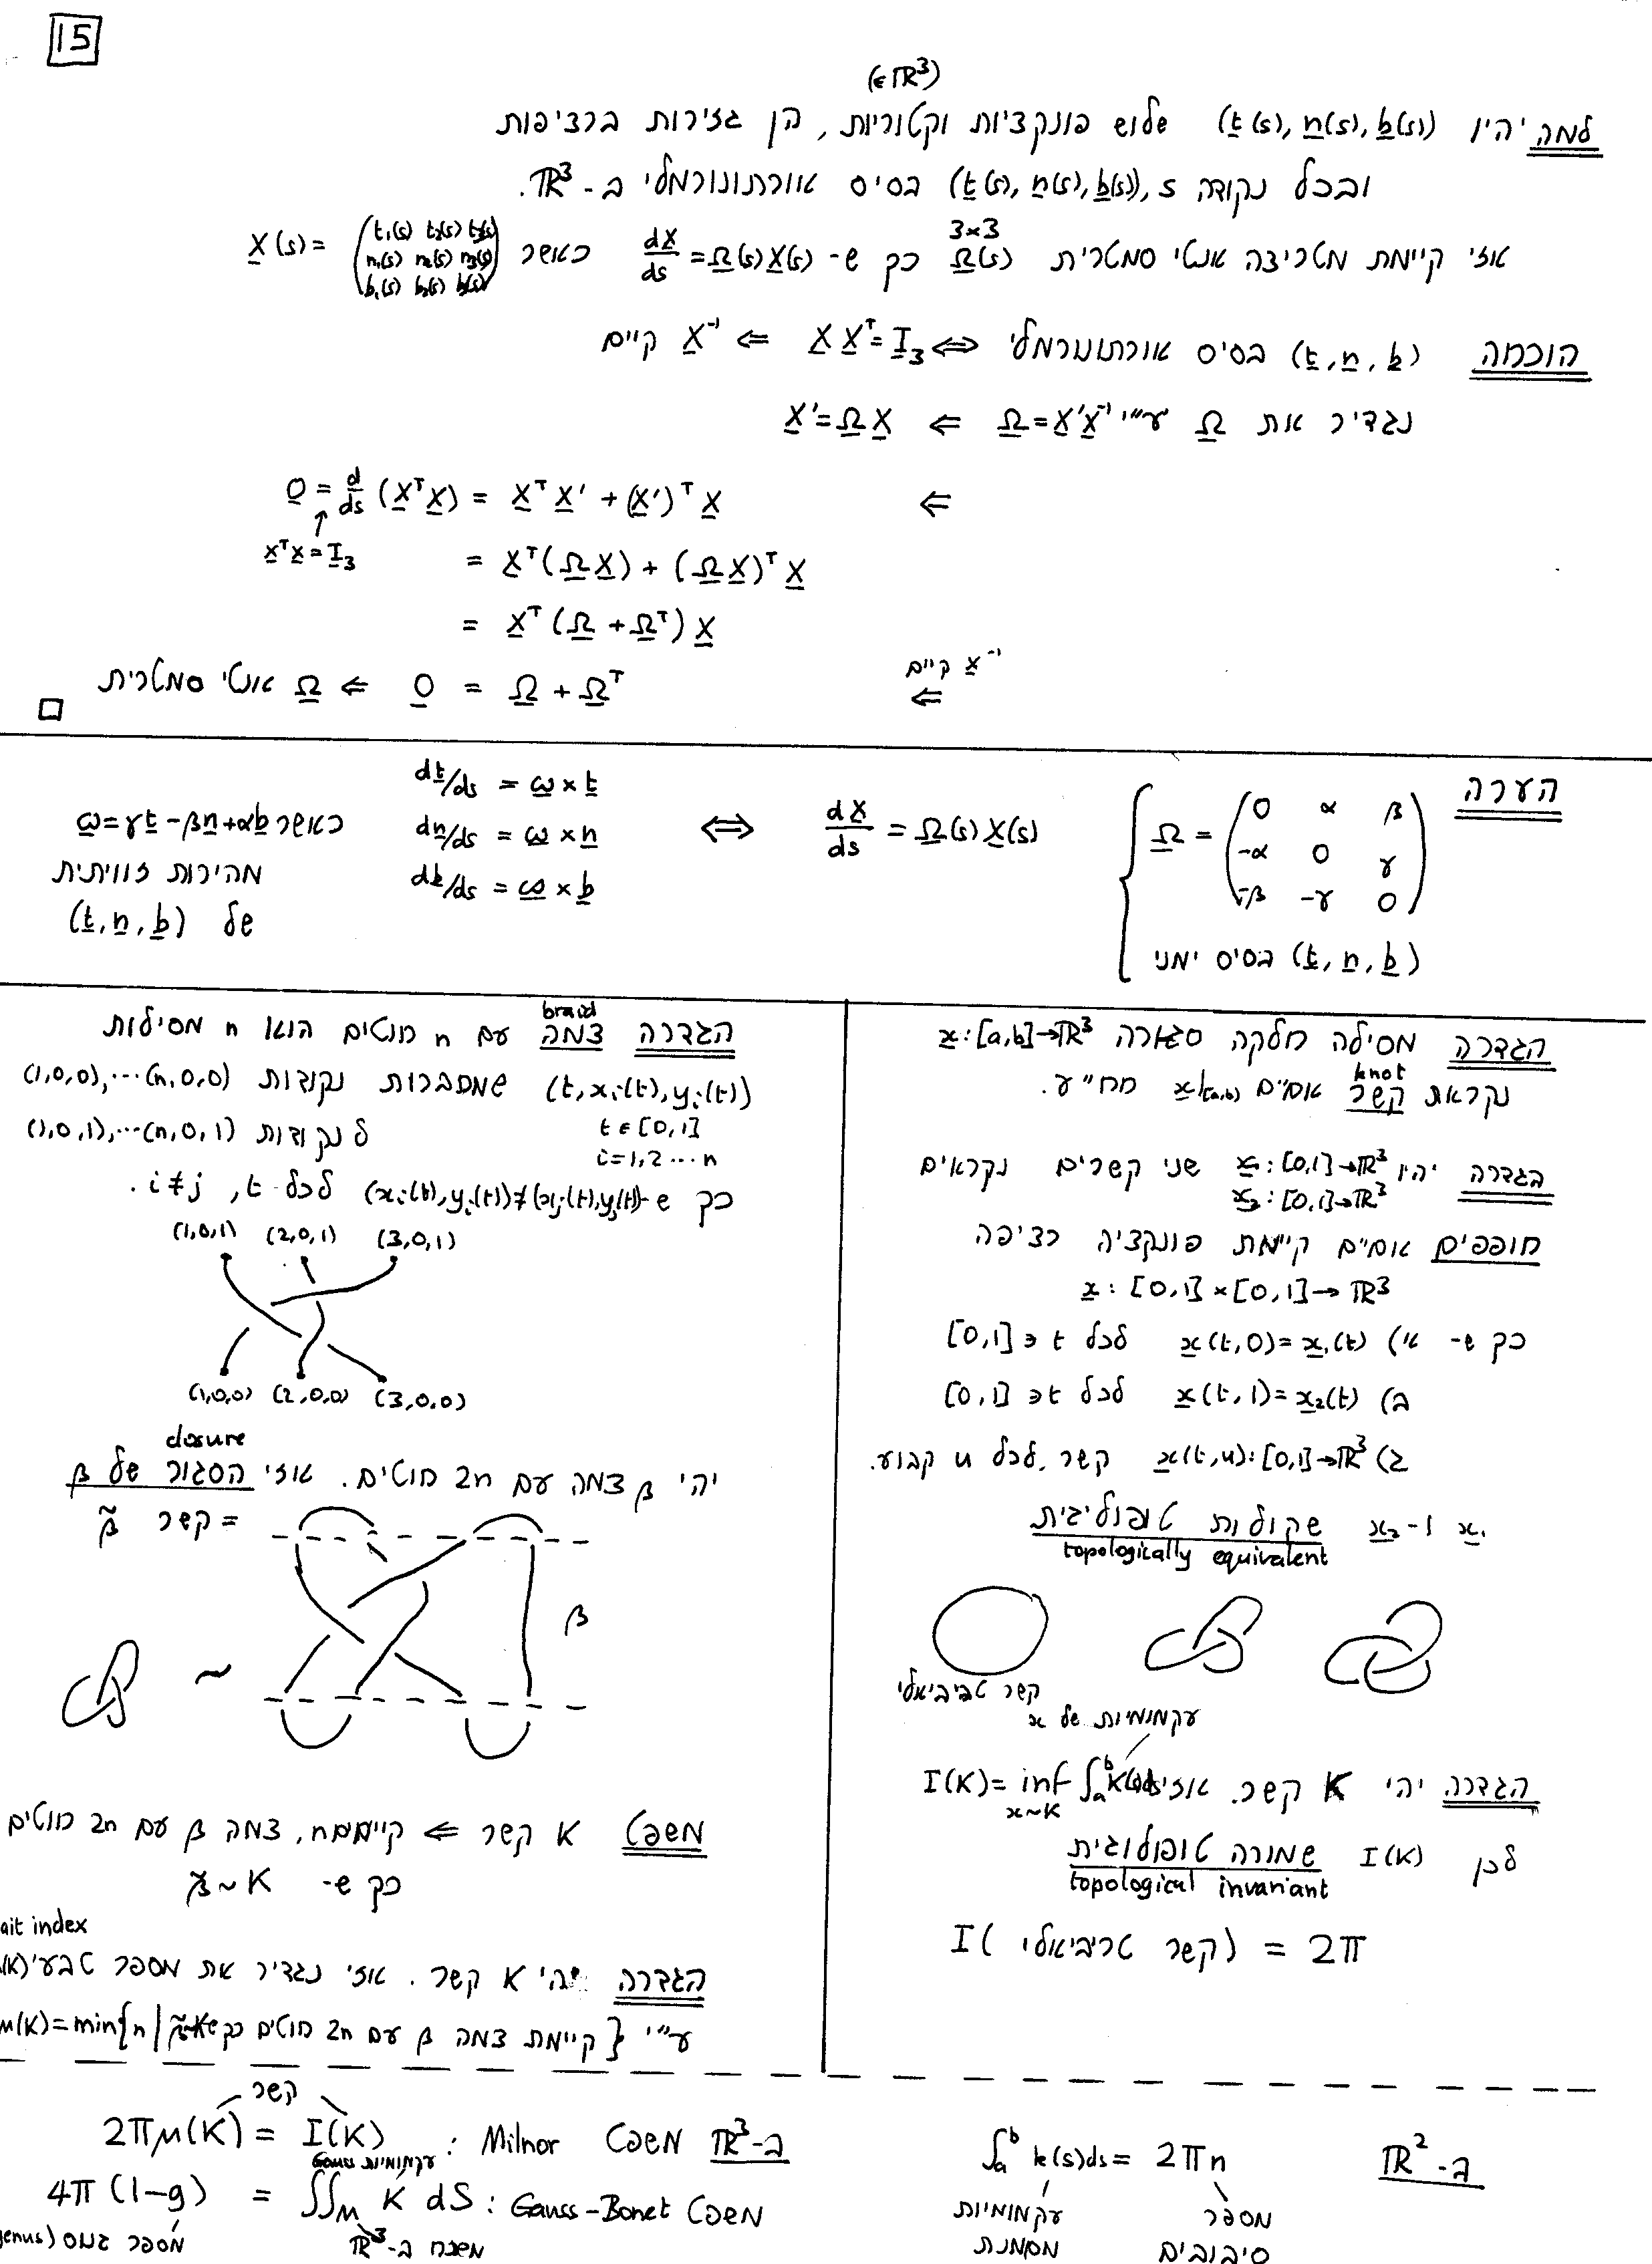 15
(∈ℝ³)
למה יהיו (t(s), n(s), b(s)) שלוש פונקציות וקטוריות, הן גזירות ברציפות
ובכל נקודה s, (t(s), n(s), b(s)) בסיס אורתונורמלי ב-ℝ³.
אזי קיימת מטריצה אנטי סמטרית Ω(s) 3×3 כך ש- dX/ds = Ω(s)X(s) כאשר X(s) = (t₁(s) t₂(s) t₃(s) / n₁(s) n₂(s) n₃(s) / b₁(s) b₂(s) b₃(s))
הוכחה (t, n, b) בסיס אורתונורמלי ⇔ X Xᵀ = I₃ ⇐ X⁻¹ קיים
נגדיר את Ω ע"י Ω = X'X⁻¹ ⇐ X' = ΩX
⇐ 0 = d/ds (XᵀX) = XᵀX' + (X')ᵀX
XᵀX = I₃
= Xᵀ(ΩX) + (ΩX)ᵀX
= Xᵀ(Ω + Ωᵀ)X
X⁻¹ קיים
⇐ 0 = Ω + Ωᵀ ⇐ Ω אנטי סמטרית □
הערה { Ω = (0 α β / -α 0 γ / -β -γ 0)
(t, n, b) בסיס ימני
dX/ds = Ω(s)X(s) ⇔
dt/ds = ω × t
dn/ds = ω × n
db/ds = ω × b
כאשר ω = γt - βn + αb
מהירות זוויתית
של (t, n, b)
הגדרה מסילה חלקה סגורה x:[a,b]→ℝ³
נקראת קשר knot אם"ם x|[a,b) חח"ע.
הגדרה יהיו x₁:[0,1]→ℝ³ שני קשרים נקראים
x₂:[0,1]→ℝ³
חופפים אם"ם קיימת פונקציה רציפה
x: [0,1]×[0,1]→ℝ³
כך ש- א) x(t,0) = x₁(t) לכל t ∈ [0,1]
ב) x(t,1) = x₂(t) לכל t ∈ [0,1]
ג) x(t,u):[0,1]→ℝ³ קשר, לכל u קבוע.
x₁ ו-x₂ שקולות טופוליגית
topologically equivalent
קשר טביביאלי
עקמומיות של x
הגדרה יהי K קשר. אזי I(K) = inf x~K ∫ₐᵇ k(s)ds
לכן I(K) שמורה טופולוגית
topological invariant
I( קשר טריביאלי ) = 2π
braid
הגדרה צמה עם n חוטים הוא n מסילות
(t, xᵢ(t), yᵢ(t)) שמחברות נקודות (1,0,0),⋯(n,0,0)
t ∈ [0,1] לנקודות (1,0,1),⋯(n,0,1)
i=1,2⋯n
כך ש- (xᵢ(t),yᵢ(t)) ≠ (xⱼ(t),yⱼ(t)) לכל t, i≠j.
(1,0,1) (2,0,1) (3,0,1)
(1,0,0) (2,0,0) (3,0,0)
closure
יהי β צמה עם 2n חוטים. אזי הסגור של β
= קשר β̃
β
~
משפט K קשר ⇐ קיימים n, צמה β עם 2n חוטים
כך ש- β̃ ~ K
ait index
הגדרה יהי K קשר. אזי נגדיר את מספר טבעי (K)
ע"י μ(K) = min{n | קיימת צמה β עם 2n חוטים כך ש β̃~K}
ב-ℝ² ∫ₐᵇ k(s)ds = 2πn
עקמומיות מסמנת
מספר סיבובים
ב-ℝ³ משפט Milnor : 2πμ(K) = I(K)
קשר
משפט Gauss-Bonet : 4π(1-g) = ∬_M K dS
עקמומיות Gauss
משטח ב-ℝ³
מספר גנוס (genus